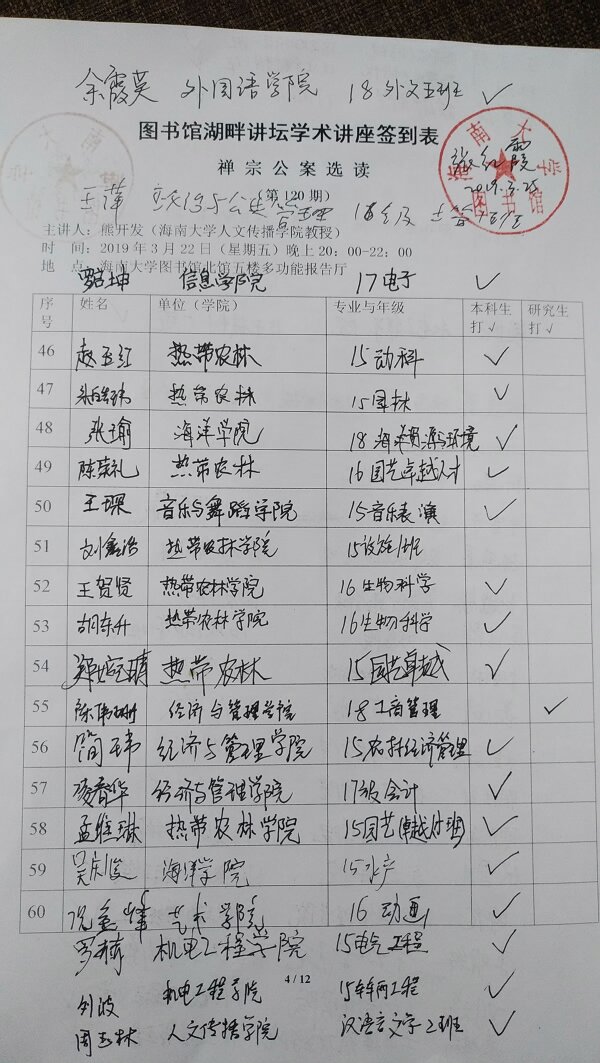 余霞英 外国语学院 18外文五班 ✓
图书馆湖畔讲坛学术讲座签到表
禅宗公案选读
海南大学图书馆
2019.3.25
(第120期)
王萍
主讲人：熊开发（海南大学人文传播学院教授）
时 间：2019年3月22日（星期五）晚上20：00-22：00
地 点：海南大学图书馆北馆五楼多功能报告厅
坤 信息学院 17电子 ✓
序号 姓名 单位（学院） 专业与年级 本科生打√ 研究生打√
46 赵玉红 热带农林 15动科 ✓
47 热带农林 15园林 ✓
48 张瑜 海洋学院 18海洋资源与环境 ✓
49 陈荣礼 热带农林 16园艺卓越人才 ✓
50 王琛 音乐与舞蹈学院 15音乐表演 ✓
51 刘鑫浩 热带农林学院 15设施1班
52 王贺贤 热带农林学院 16生物科学 ✓
53 胡东升 热带农林学院 16生物科学 ✓
54 热带农林 15园艺卓越 ✓
55 经济与管理学院 18工商管理 ✓
56 简玮 经济与管理学院 15农林经济管理 ✓
57 春华 经济与管理学院 17级会计 ✓
58 孟维琳 热带农林学院 15园艺(卓越班) ✓
59 吴庆俊 海洋学院 15水产 ✓
60 艺术学院 16动画 ✓
罗 机电工程学院 15电气工程 ✓
4/12
刘波 机电工程学院 15车辆工程 ✓
周玉林 人文传播学院 汉语言文学2班 ✓